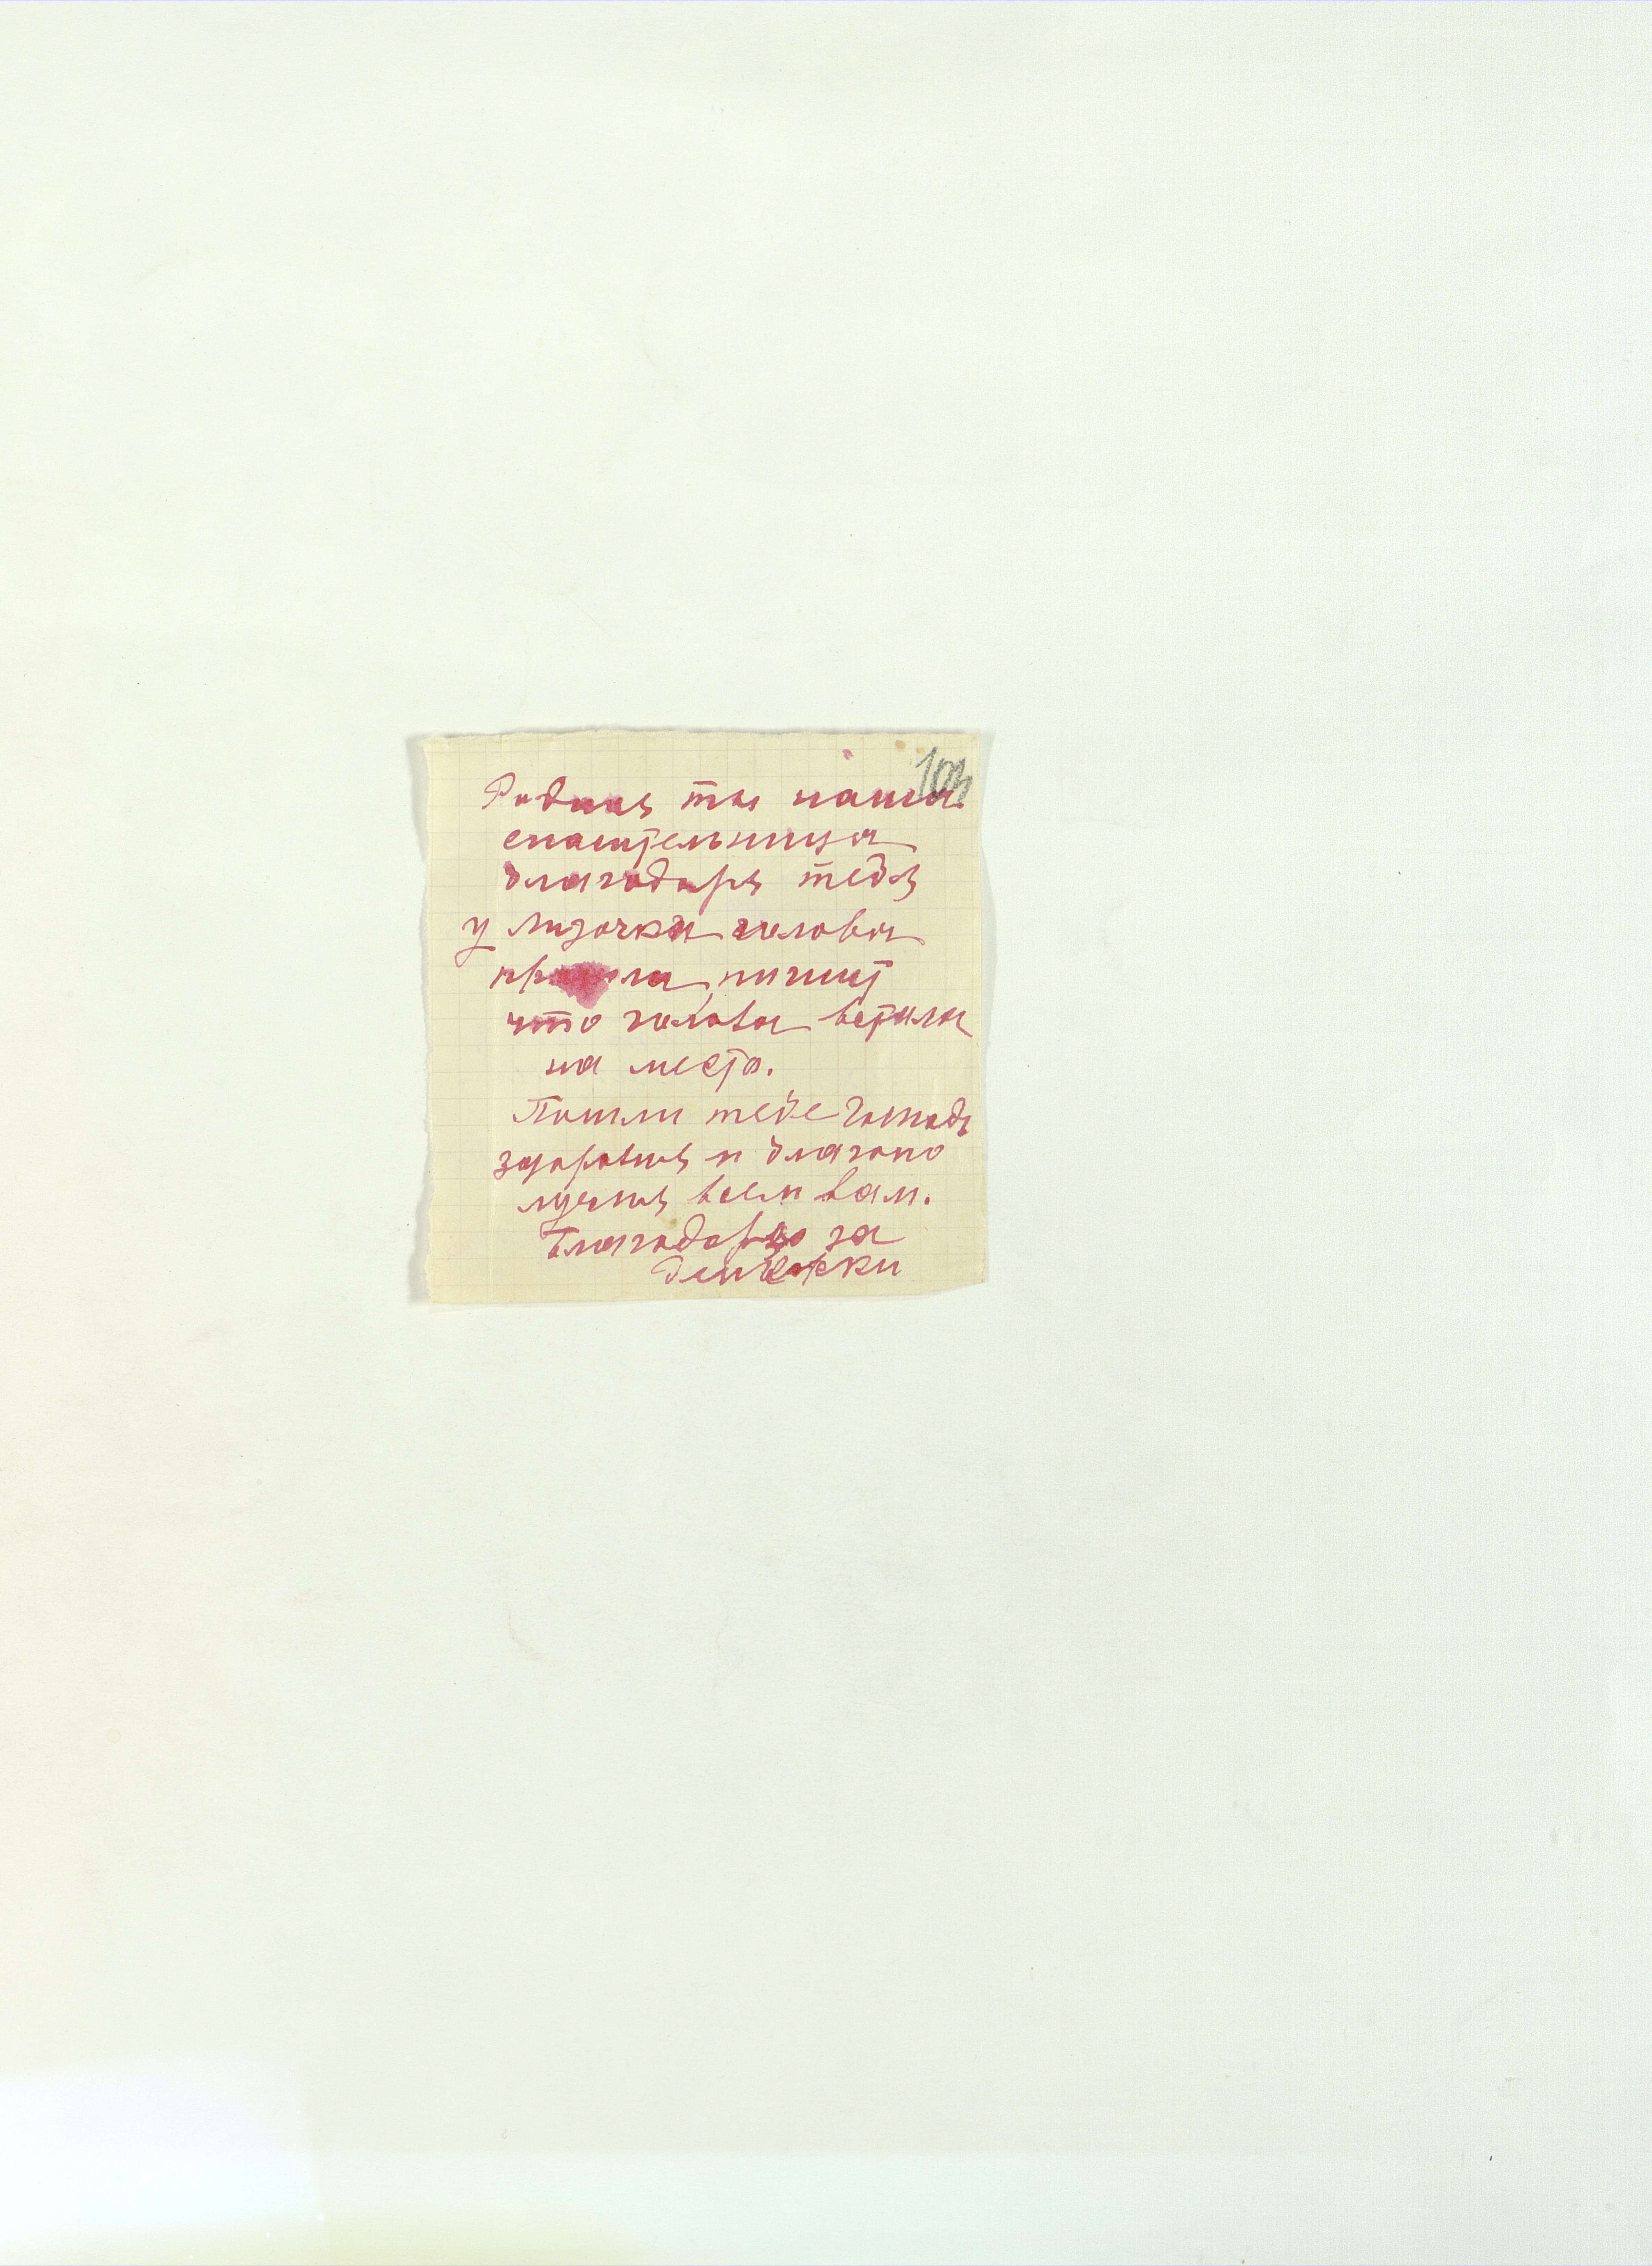 103
Родная ты наша
спасительница
благодаря тебя
у Лизочки голова
прошла, пишет
что голова встала
на место.
Пошли тебе Господь
здоровия и благопо
лучия всем вам.
Благодарю за